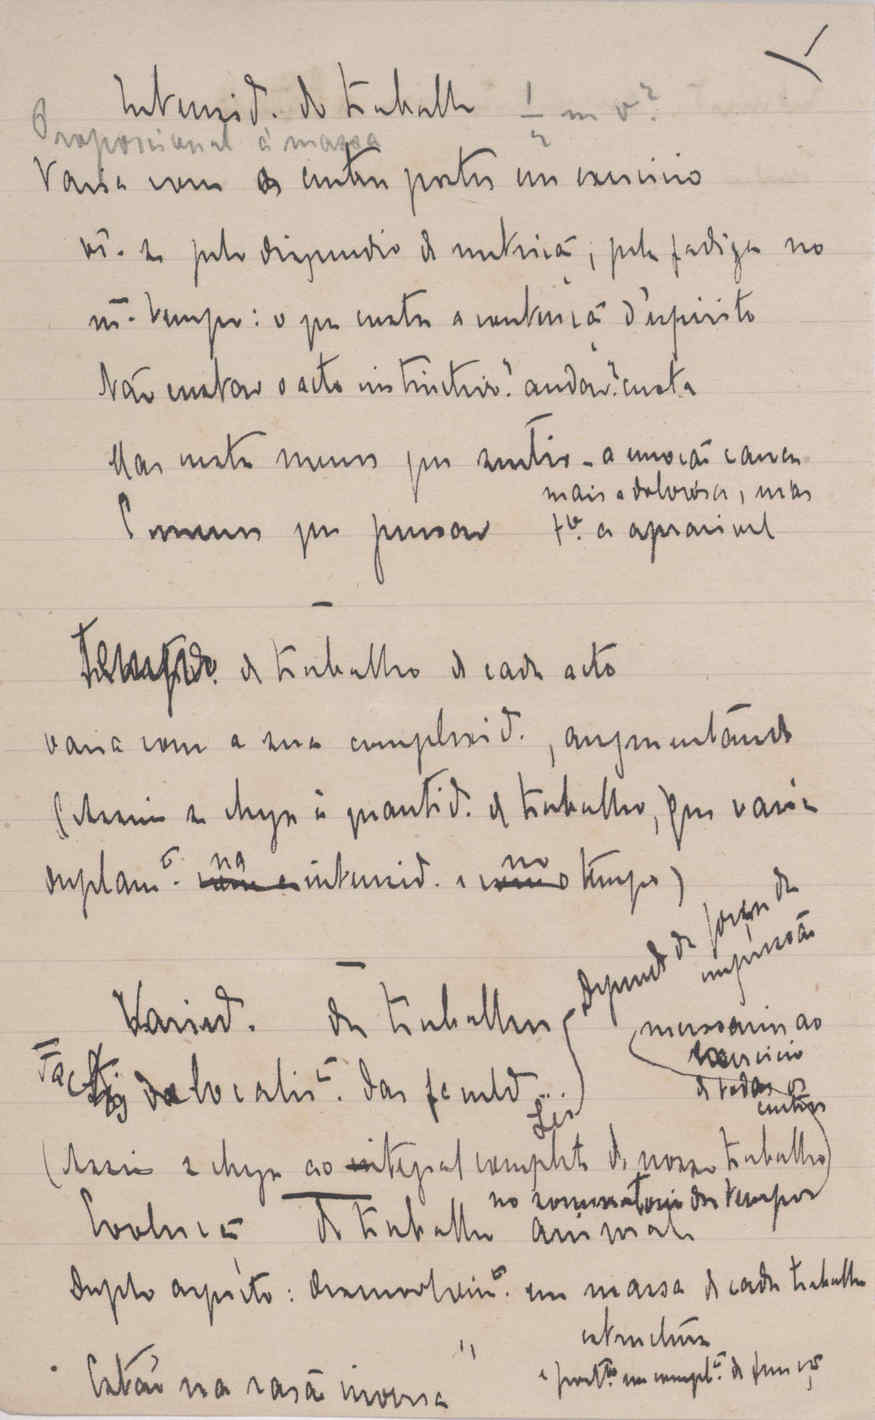 Intensid. do trabalho 1/2 m v²
Proporcional á massa
Varia com os centros postos em exercicio
vê-se pelo dispendio de nutrição, pela fadiga no
m.mo tempo: o que custa a contenção d'espirito
Não custar o acto instinctivo? andar? custa
Mas custa menos que sentir - a emoção cansa
mais a dolorosa, mas
tb. a aprasivel
E menos que pensar
Tempo de trabalho de cada acto
varia com a sua complexid., augmentando
(Assim se chega á quantid. de trabalho, que varia
duplam.te na intensid. e no tempo)
Varied. de trabalhos
depende da força da
impressão
Factos da localis.ão das faculd.
Leis
mas ao
exercicio
de todos os
centros
(Assim se chega ao integral completo do nosso trabalho)
no somatorio dos tempos
Evolução do trabalho animal
Duplo aspecto: desenvolvim.to em massa de cada trabalho
estructura
e em compl.ão de funções
Estão na rasão inversa